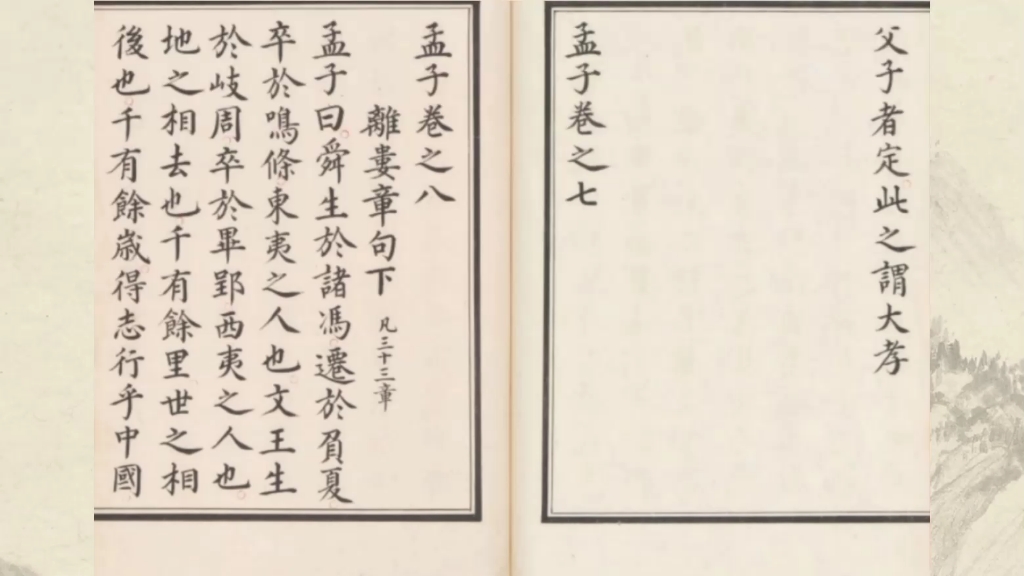 父子者定此之謂大孝
孟子卷之七
孟子卷之八
離婁章句下凡三十三章
孟子曰舜生於諸馮遷於負夏
卒於鳴條東夷之人也文王生
於岐周卒於畢郢西夷之人也
地之相去也千有餘里世之相
後也千有餘歲得志行乎中國